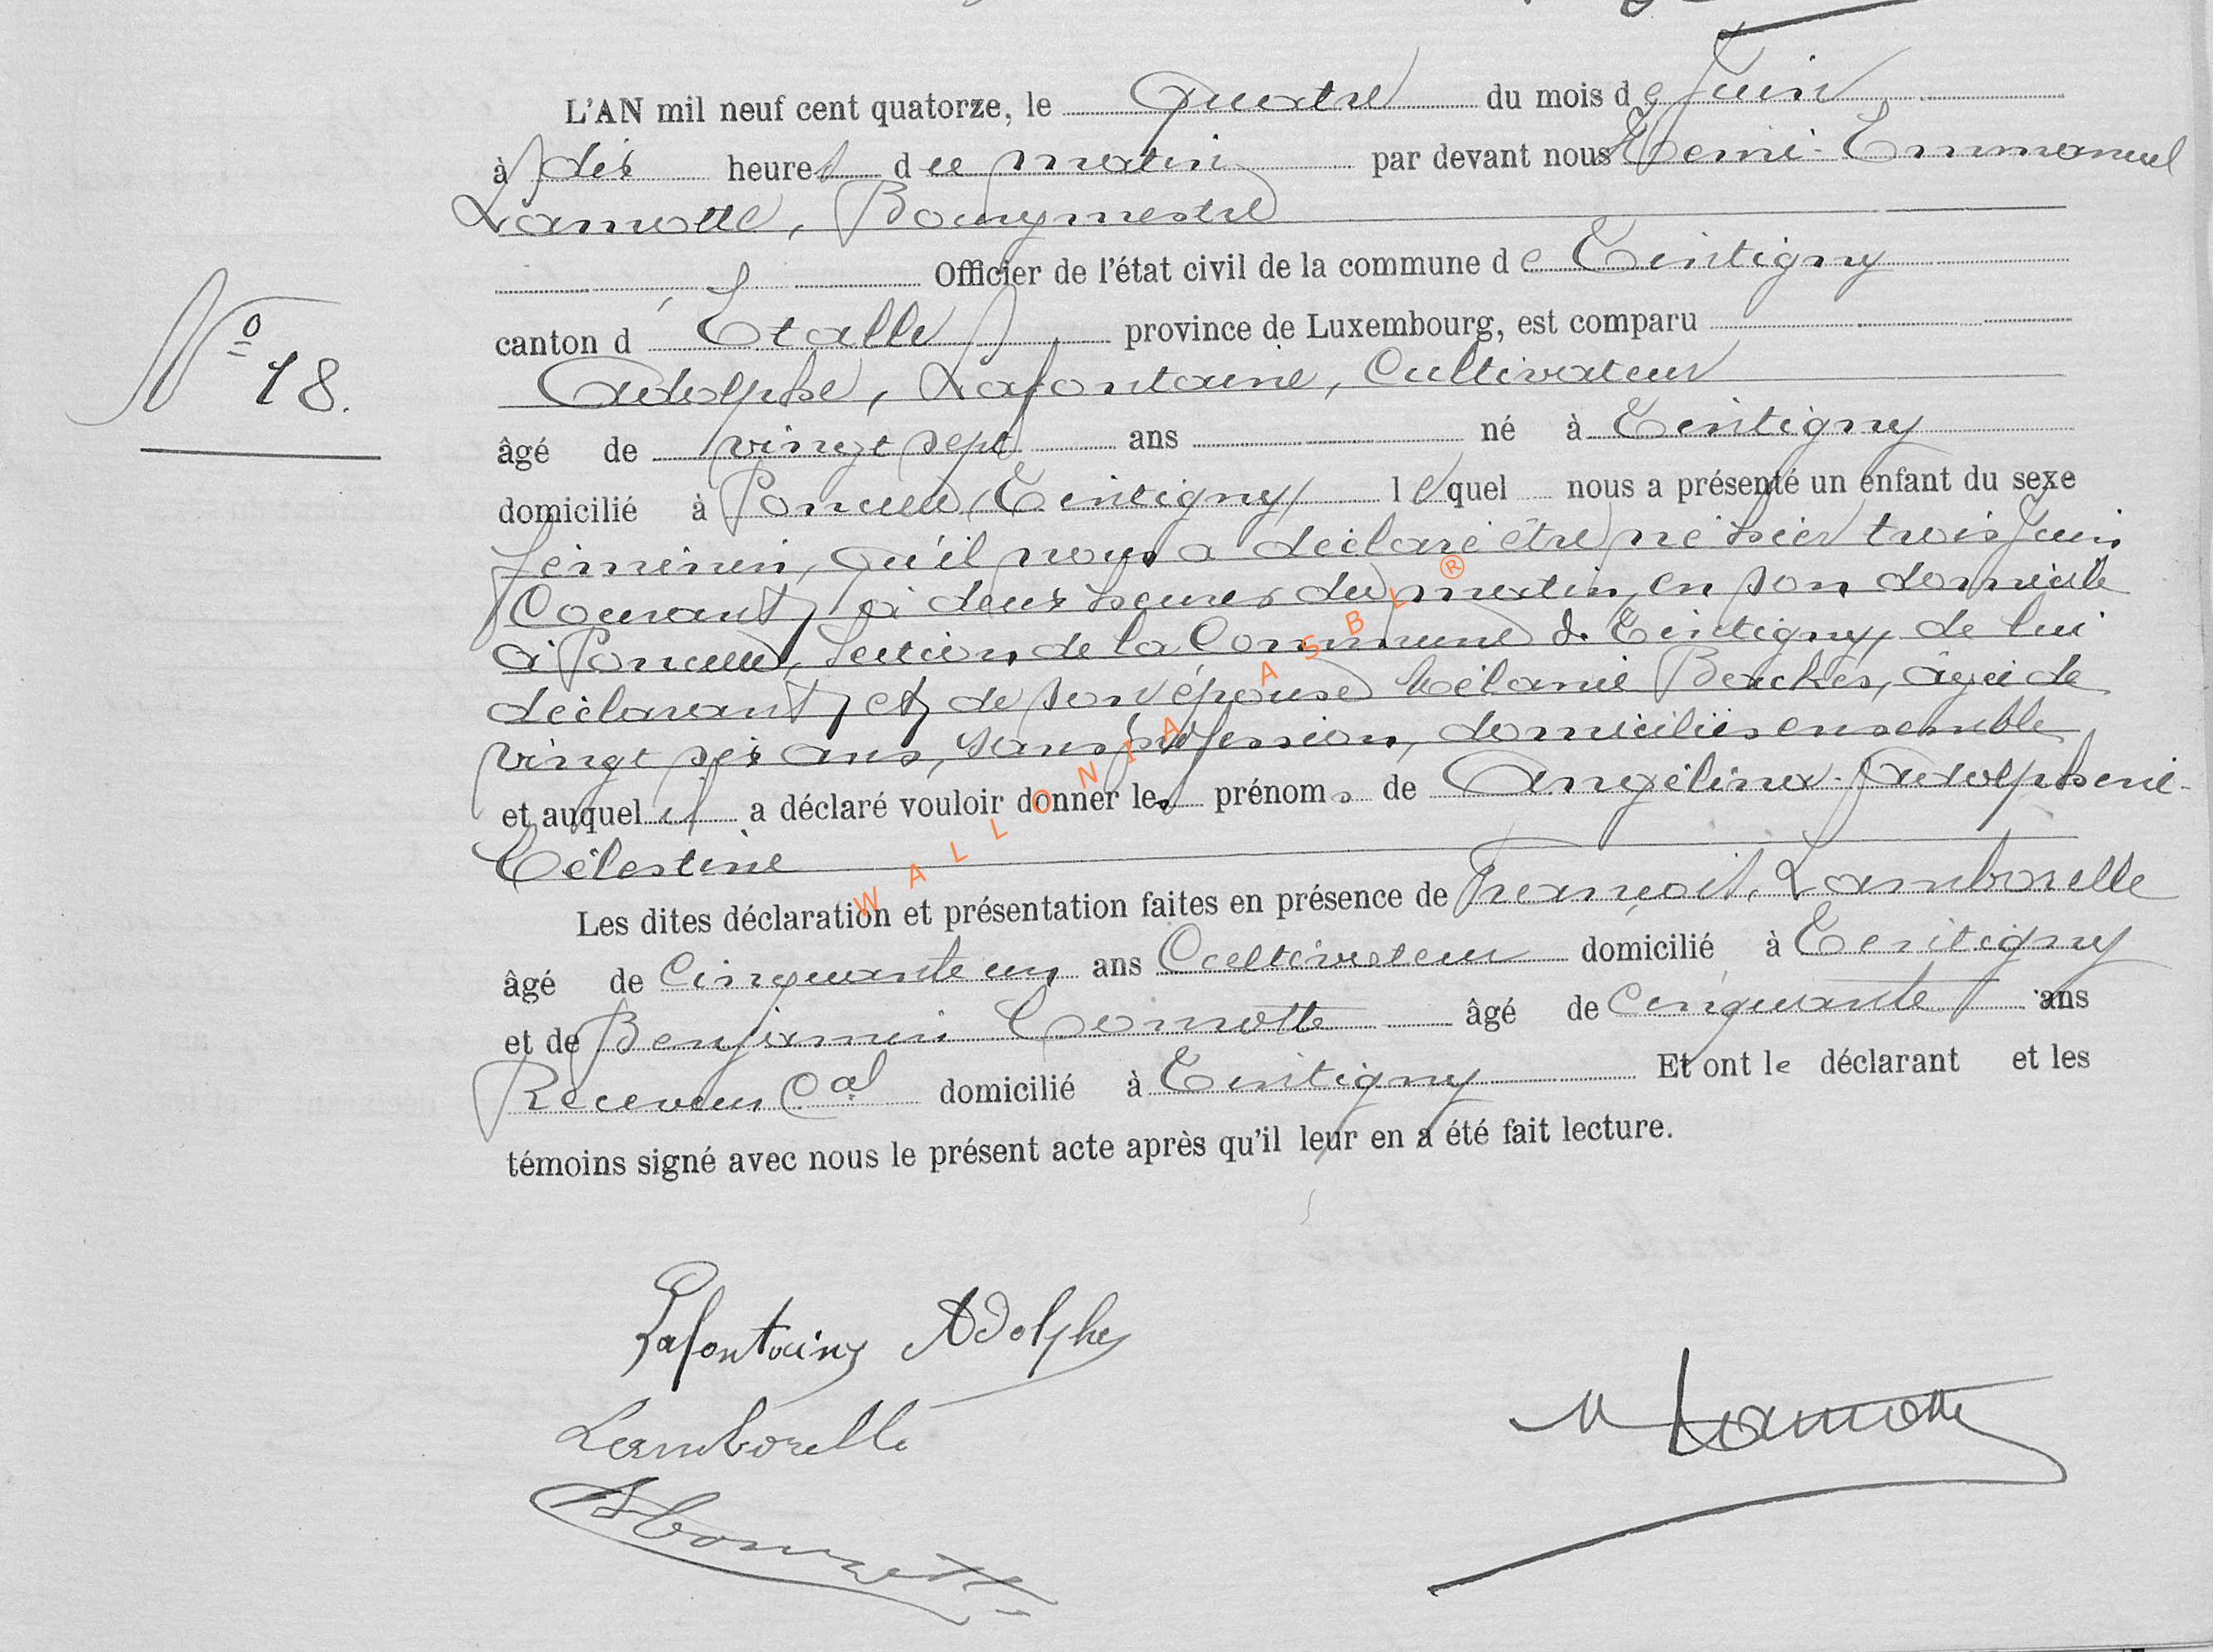 L'AN mil neuf cent quatorze, le Quatre du mois de Juin
à dix heures du matin par devant nous Henri-Emmanuel
Lamotte, Bourgmestre
Officier de l'état civil de la commune de Tintigny
canton d'Etalle province de Luxembourg, est comparu
Nº 18.
Adolphe, Lafontaine, Cultivateur
âgé de vingt sept ans né à Tintigny
domicilié à Poncelle (Tintigny) lequel nous a présenté un enfant du sexe
féminin, qu'il nous a déclaré être né hier trois Juin
Courant, à deux heures du matin, en son domicile
à Poncelle, Section de la Commune de Tintigny, de lui
déclarant, et de son épouse Mélanie Backes, âgée de
vingt six ans, sans profession, domiciliés ensemble
et auquel il a déclaré vouloir donner les prénoms de Angélina-Adolphenie-
Célestine
Les dites déclaration et présentation faites en présence de François, Lamborelle
âgé de Cinquante un ans Cultivateur domicilié à Tintigny
et de Benjamin Comotte âgé de Cinquante ans
Receveur Cal domicilié à Tintigny Et ont le déclarant et les
témoins signé avec nous le présent acte après qu'il leur en a été fait lecture.
Lafontaine Adolphe
Lamborelle
Lamotte
WALLONIA ASBL ®